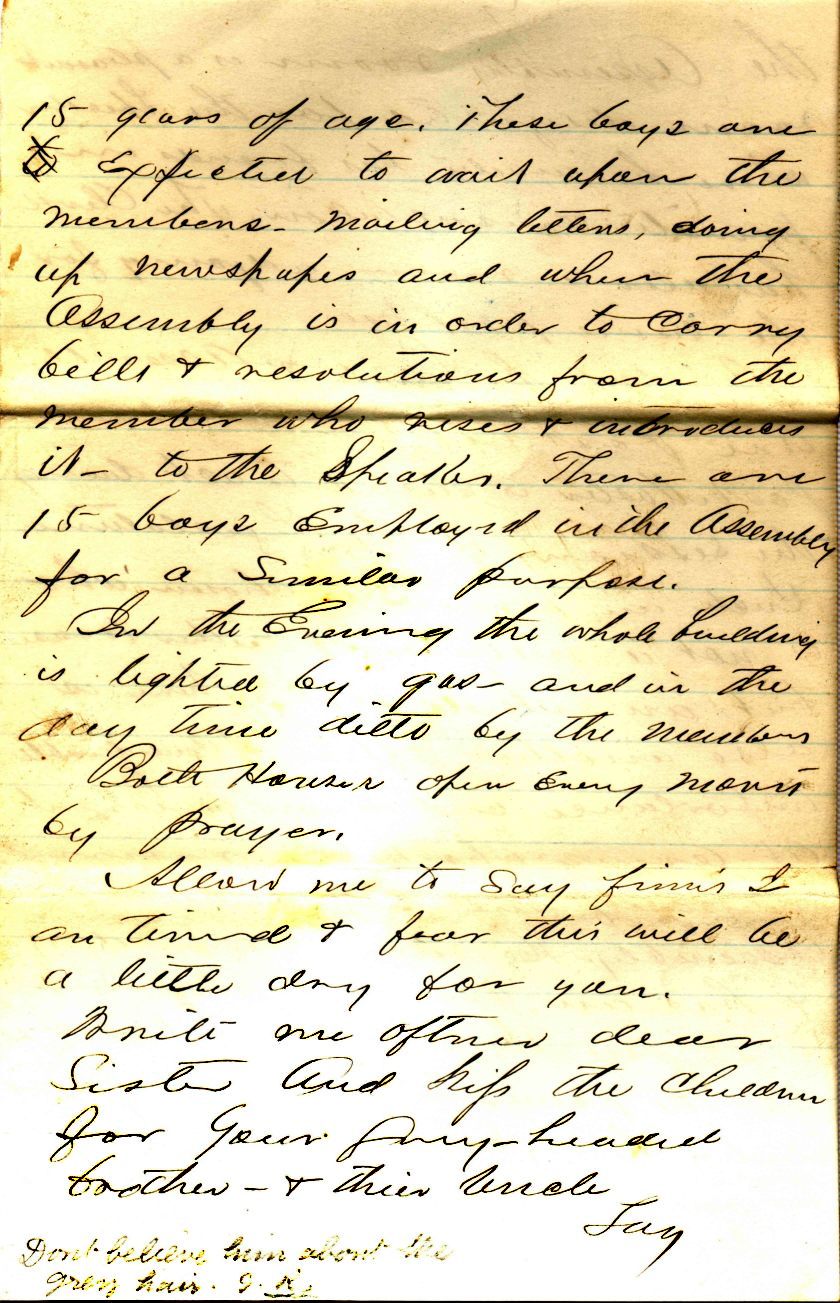 15 years of age. These boys are
to Expected to wait upon the
members - mailing letters, doing
up newspapes and when the
Assembly is in order to Carry
bills & resolutions from the
member who rises & introduces
it - to the Speaker. There are
15 boys Employd in the Assembly
for a Similar purpose.
In the Evening the whole building
is lighted by gas - and in the
day time ditto by the members
Both Houses open Every morn
by prayer.
Allow me to Say finis I
am tired & fear this will be
a little dry for you.
Write me oftner dear
Sister And Kiss the Children
for your Grey-headed
brother - & thier Uncle
Jay
Dont believe him about the
grey hair.